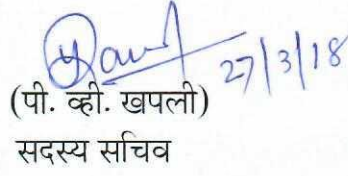 27/3/18
(पी. व्ही. खपली)
सदस्य सचिव